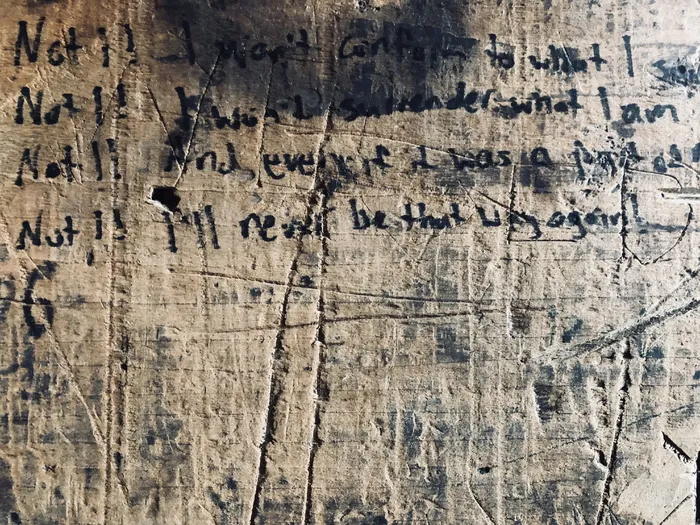 Not I! I won't conform to what I
Not I! I won't surrender what I am
Not I! And even if I was a part of
Not I! I'll never be that way again!
G